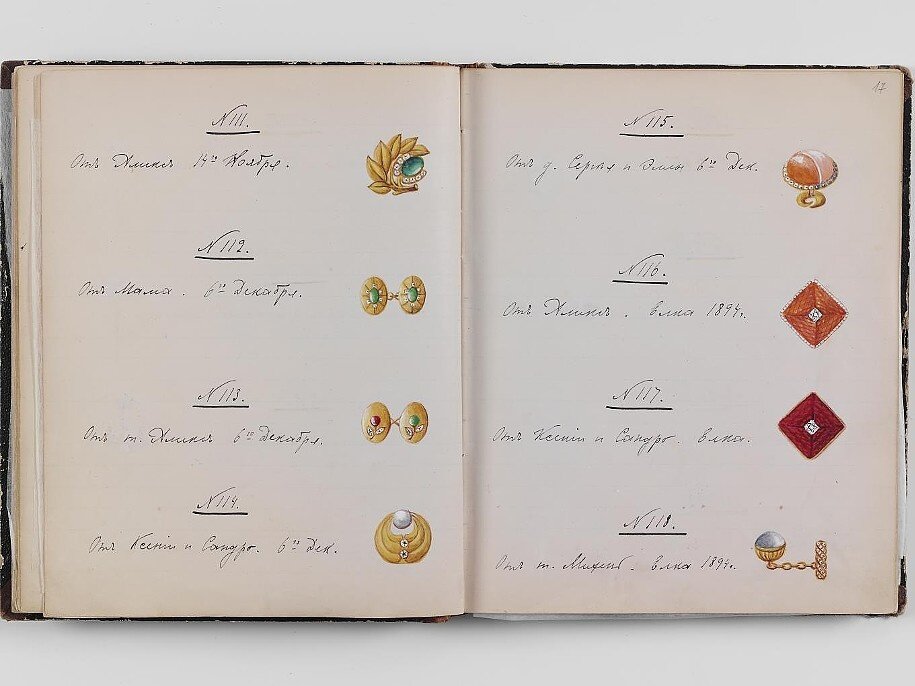 N 111.
Отъ Аликсъ 14го Ноября.
N 112.
Отъ Мама. 6го Декабря.
N 113.
Отъ т. Аликсъ 6го Декабря.
N 114.
Отъ Ксеніи и Сандро. 6го Дек.
17
N 115.
Отъ д. Сергѣя и Эллы 6го Дек.
N 116.
Отъ Аликсъ. ёлка 1894г.
N 117.
Отъ Ксеніи и Сандро. ёлка.
N 118.
Отъ т. ёлка 1894г.